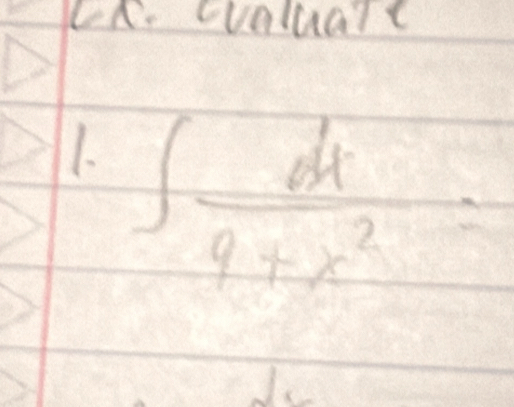 Ex. Evaluate
1. ∫ dx / 9 + x² =
dx